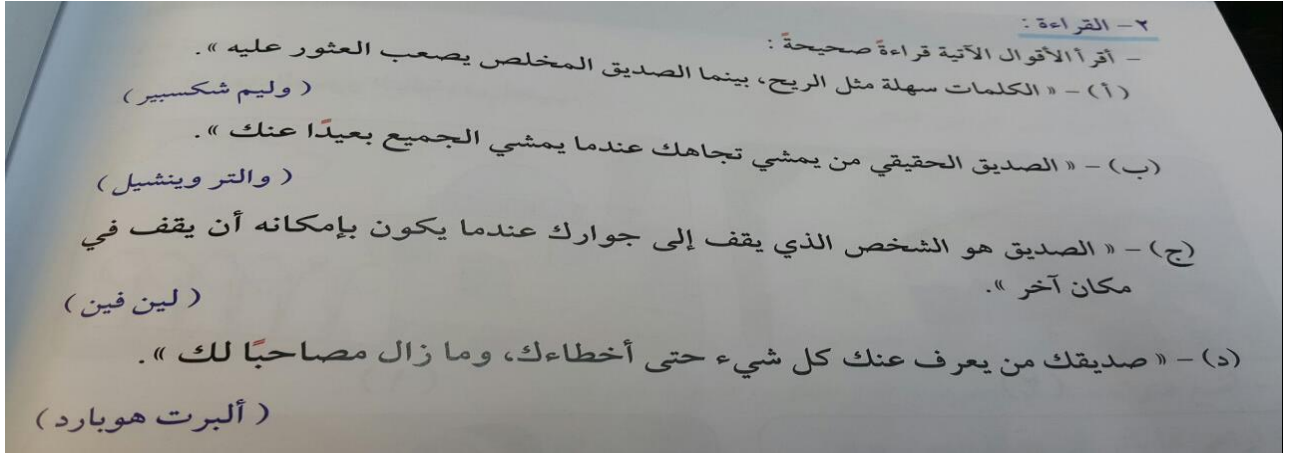 ٢ - القراءة :
- أقرأ الأقوال الآتية قراءةً صحيحةً :
(أ) - « الكلمات سهلة مثل الريح، بينما الصديق المخلص يصعب العثور عليه ».
( وليم شكسبير )
(ب) - « الصديق الحقيقي من يمشي تجاهك عندما يمشي الجميع بعيدًا عنك ».
( والتر وينشيل )
(ج) - « الصديق هو الشخص الذي يقف إلى جوارك عندما يكون بإمكانه أن يقف في
مكان آخر ».
( لين فين )
(د) - « صديقك من يعرف عنك كل شيء حتى أخطاءك، وما زال مصاحبًا لك ».
( ألبرت هوبارد )